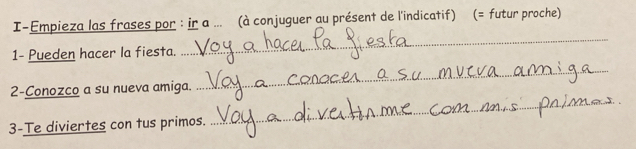 I-Empieza las frases por : ir a ... (à conjuguer au présent de l'indicatif) (= futur proche)
1- Pueden hacer la fiesta. Voy a hacer la fiesta
2-Conozco a su nueva amiga. Voy a conocer a su nueva amiga
3-Te diviertes con tus primos. Voy a divertirme con mis primos.